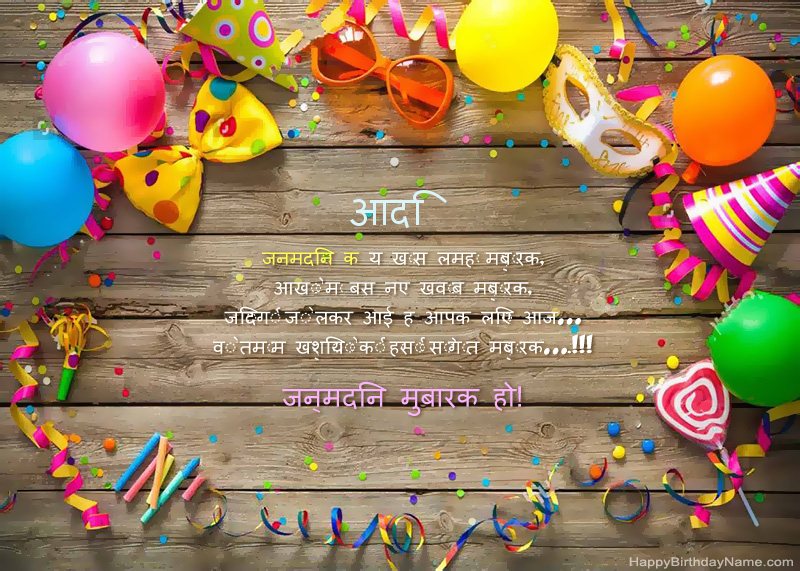 आदि
जनमदिन क य खास लमह मबुरक,
आखोम बस नए खवाब मबुरक,
जिंदगी जोलकर आई ह आपक लिए आज...
वो तमाम खुशियो की हसी सौगात मबुरक....!!!
जन्मदिन मुबारक हो!
HappyBirthdayName.com